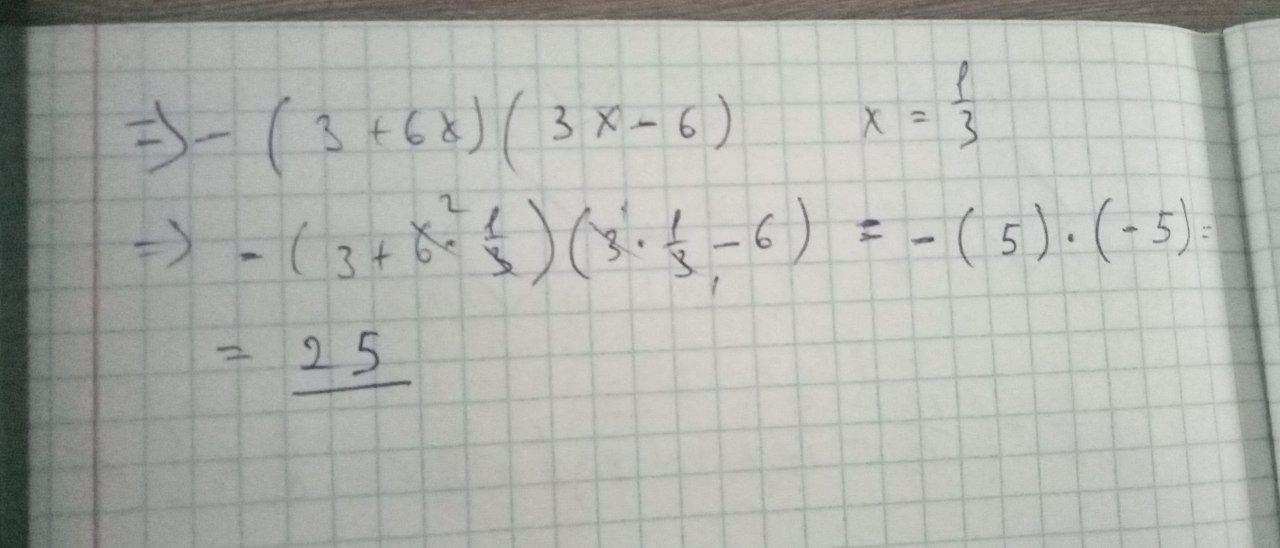 ⇒ - (3 + 6x)(3x - 6) x = 1/3
⇒ - (3 + 6² · 1/3)(3¹ · 1/3 - 6) = - (5) · (-5) =
= 25